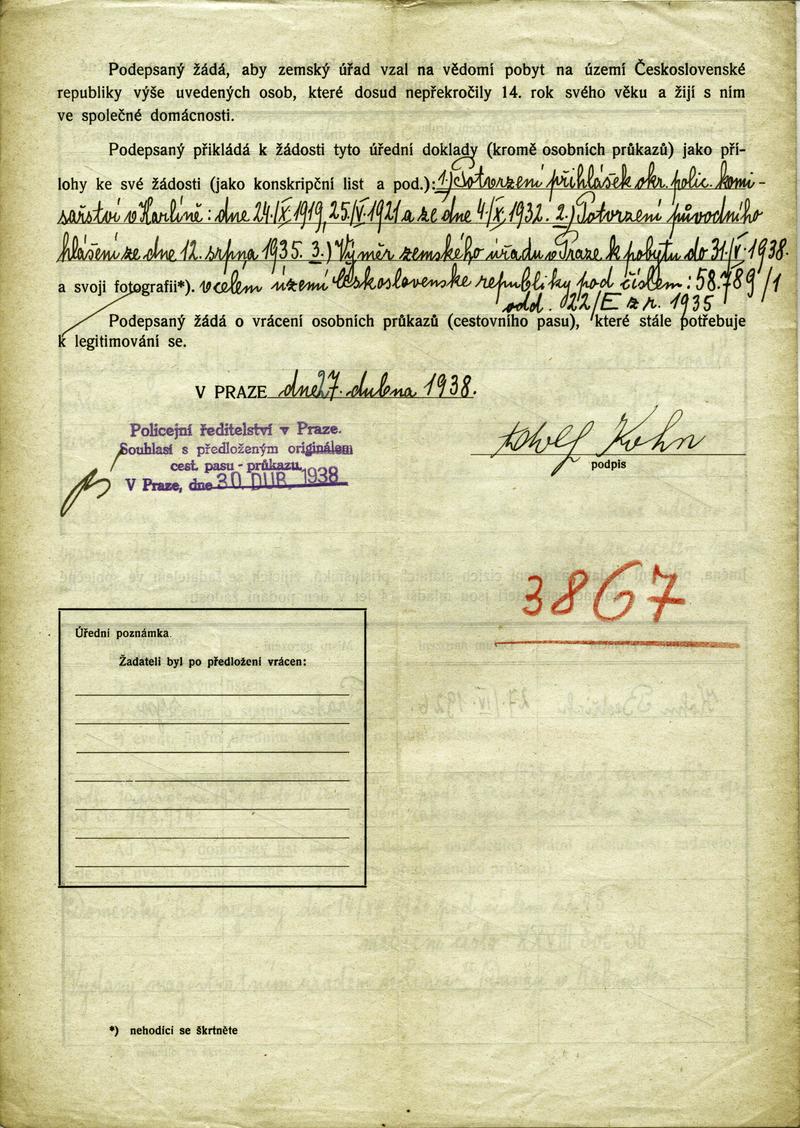 Podepsaný žádá, aby zemský úřad vzal na vědomí pobyt na území Československé
republiky výše uvedených osob, které dosud nepřekročily 14. rok svého věku a žijí s ním
ve společné domácnosti.
Podepsaný přikládá k žádosti tyto úřední doklady (kromě osobních průkazů) jako pří-
lohy ke své žádosti (jako konskripční list a pod.): 1.) Potvrzení přihlášek okr. polic. komi-
sařství v Karlíně: dne 24./X 1919, 25./VI 1921 a ze dne 4./X. 1932. 2.) Potvrzení původního
hlášení ze dne 12. srpna 1935. 3.) Výměr zemského úřadu v Praze k pobytu do 31./V. 1938.
a svoji fotografii*). v celem území Československe republiky pod číslem: 58.789/1
odd. 22/E z r. 1935
Podepsaný žádá o vrácení osobních průkazů (cestovního pasu), které stále potřebuje
k legitimování se.
V PRAZE dne 27. dubna 1938.
Policejní ředitelství v Praze.
Souhlasí s předloženým originálem
cest. pasu - průkazu.
V Praze, dne 30 DUB. 1938
Adolf Kohn
podpis
3867
Úřední poznámka.
Žadateli byl po předložení vrácen:
*) nehodící se škrtněte